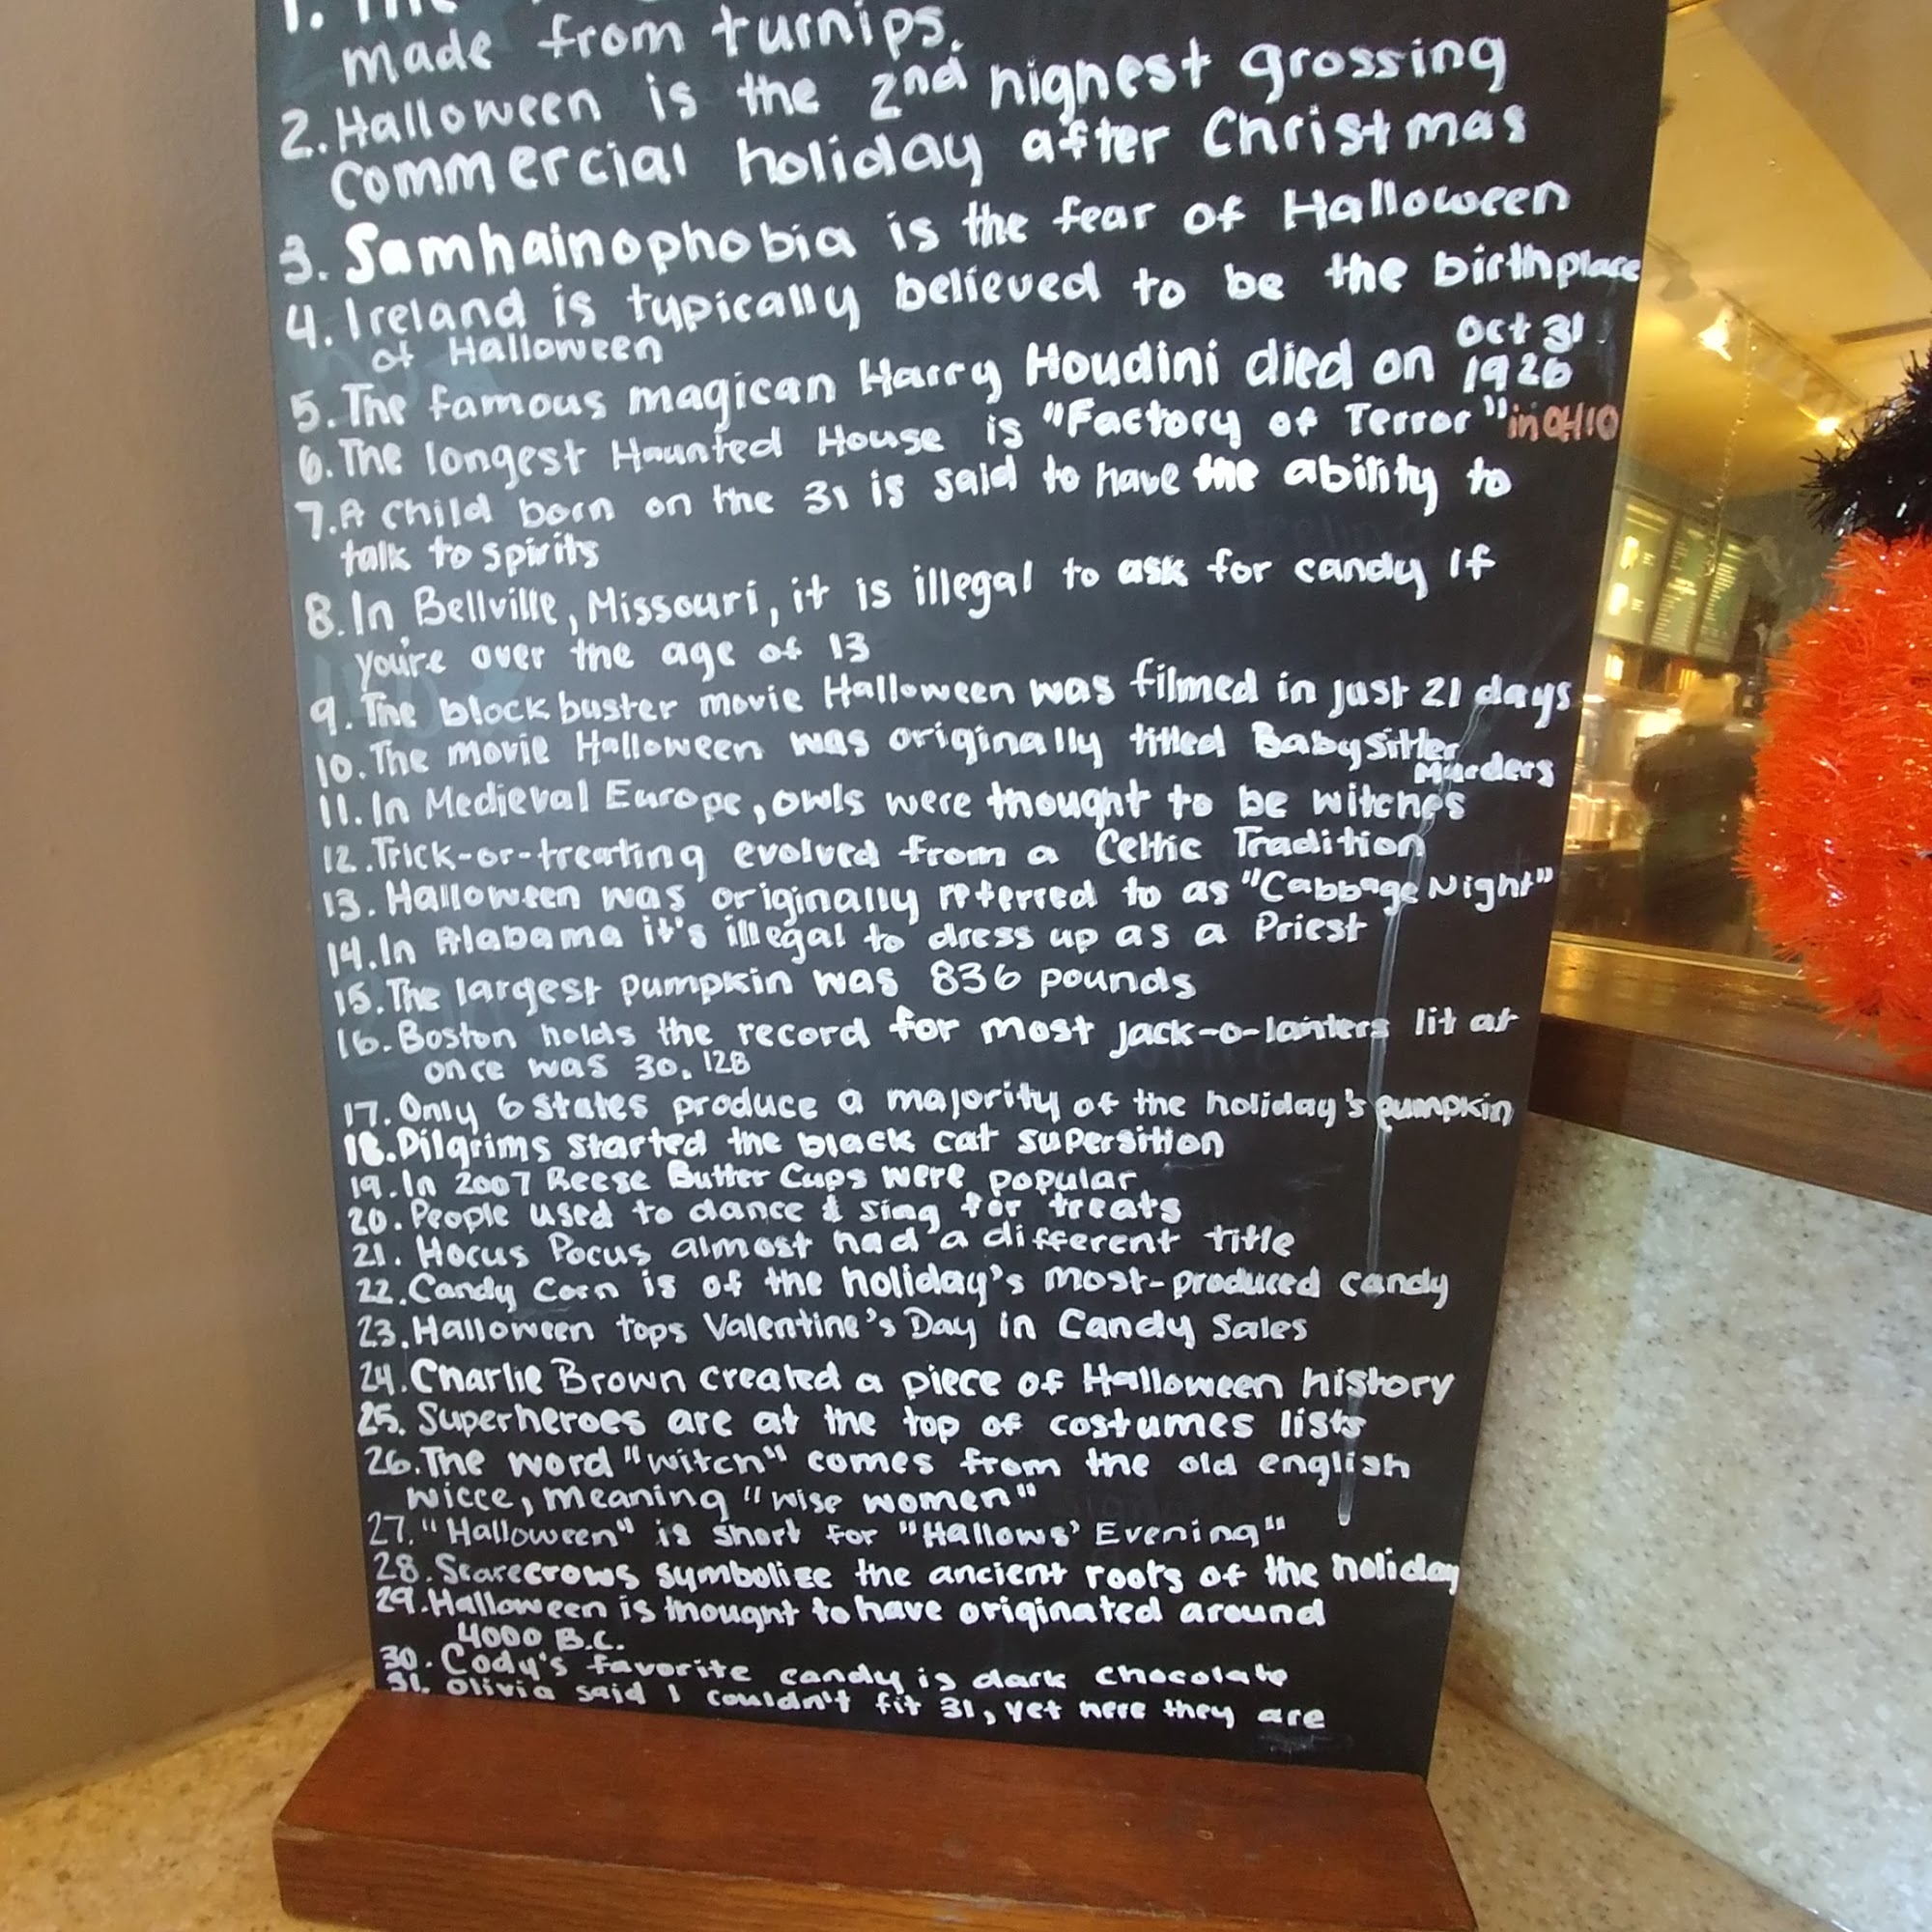 1. The
made from turnips.
2. Halloween is the 2nd highest grossing
commercial holiday after Christmas
3. Samhainophobia is the fear of Halloween
4. Ireland is typically believed to be the birthplace
of Halloween
5. The famous magican Harry Houdini died on Oct 31 1926
6. The longest Haunted House is "Factory of Terror" in OHIO
7. A child born on the 31 is said to have the ability to
talk to spirits
8. In Bellville, Missouri, it is illegal to ask for candy if
you're over the age of 13
9. The blockbuster movie Halloween was filmed in just 21 days
10. The movie Halloween was originally titled Babysitter
Murders
11. In Medieval Europe, owls were thought to be witches
12. Trick-or-treating evolved from a Celtic Tradition
13. Halloween was originally referred to as "Cabbage Night"
14. In Alabama it's illegal to dress up as a Priest
15. The largest pumpkin was 836 pounds
16. Boston holds the record for most jack-o-lanters lit at
once was 30.128
17. Only 6 states produce a majority of the holiday's pumpkin
18. Pilgrims started the black cat supersition
19. In 2007 Reese Butter Cups were popular
20. People used to dance & sing for treats
21. Hocus Pocus almost had a different title
22. Candy Corn is of the holiday's most-produced candy
23. Halloween tops Valentine's Day in Candy Sales
24. Charlie Brown created a piece of Halloween history
25. Superheroes are at the top of costumes lists
26. The word "witch" comes from the old english
wicce, meaning "wise women"
27. "Halloween" is short for "Hallows' Evening"
28. Scarecrows symbolize the ancient roots of the holiday
29. Halloween is thought to have originated around
4000 B.C.
30. Cody's favorite candy is dark chocolate
31. Olivia said I couldn't fit 31, yet here they are